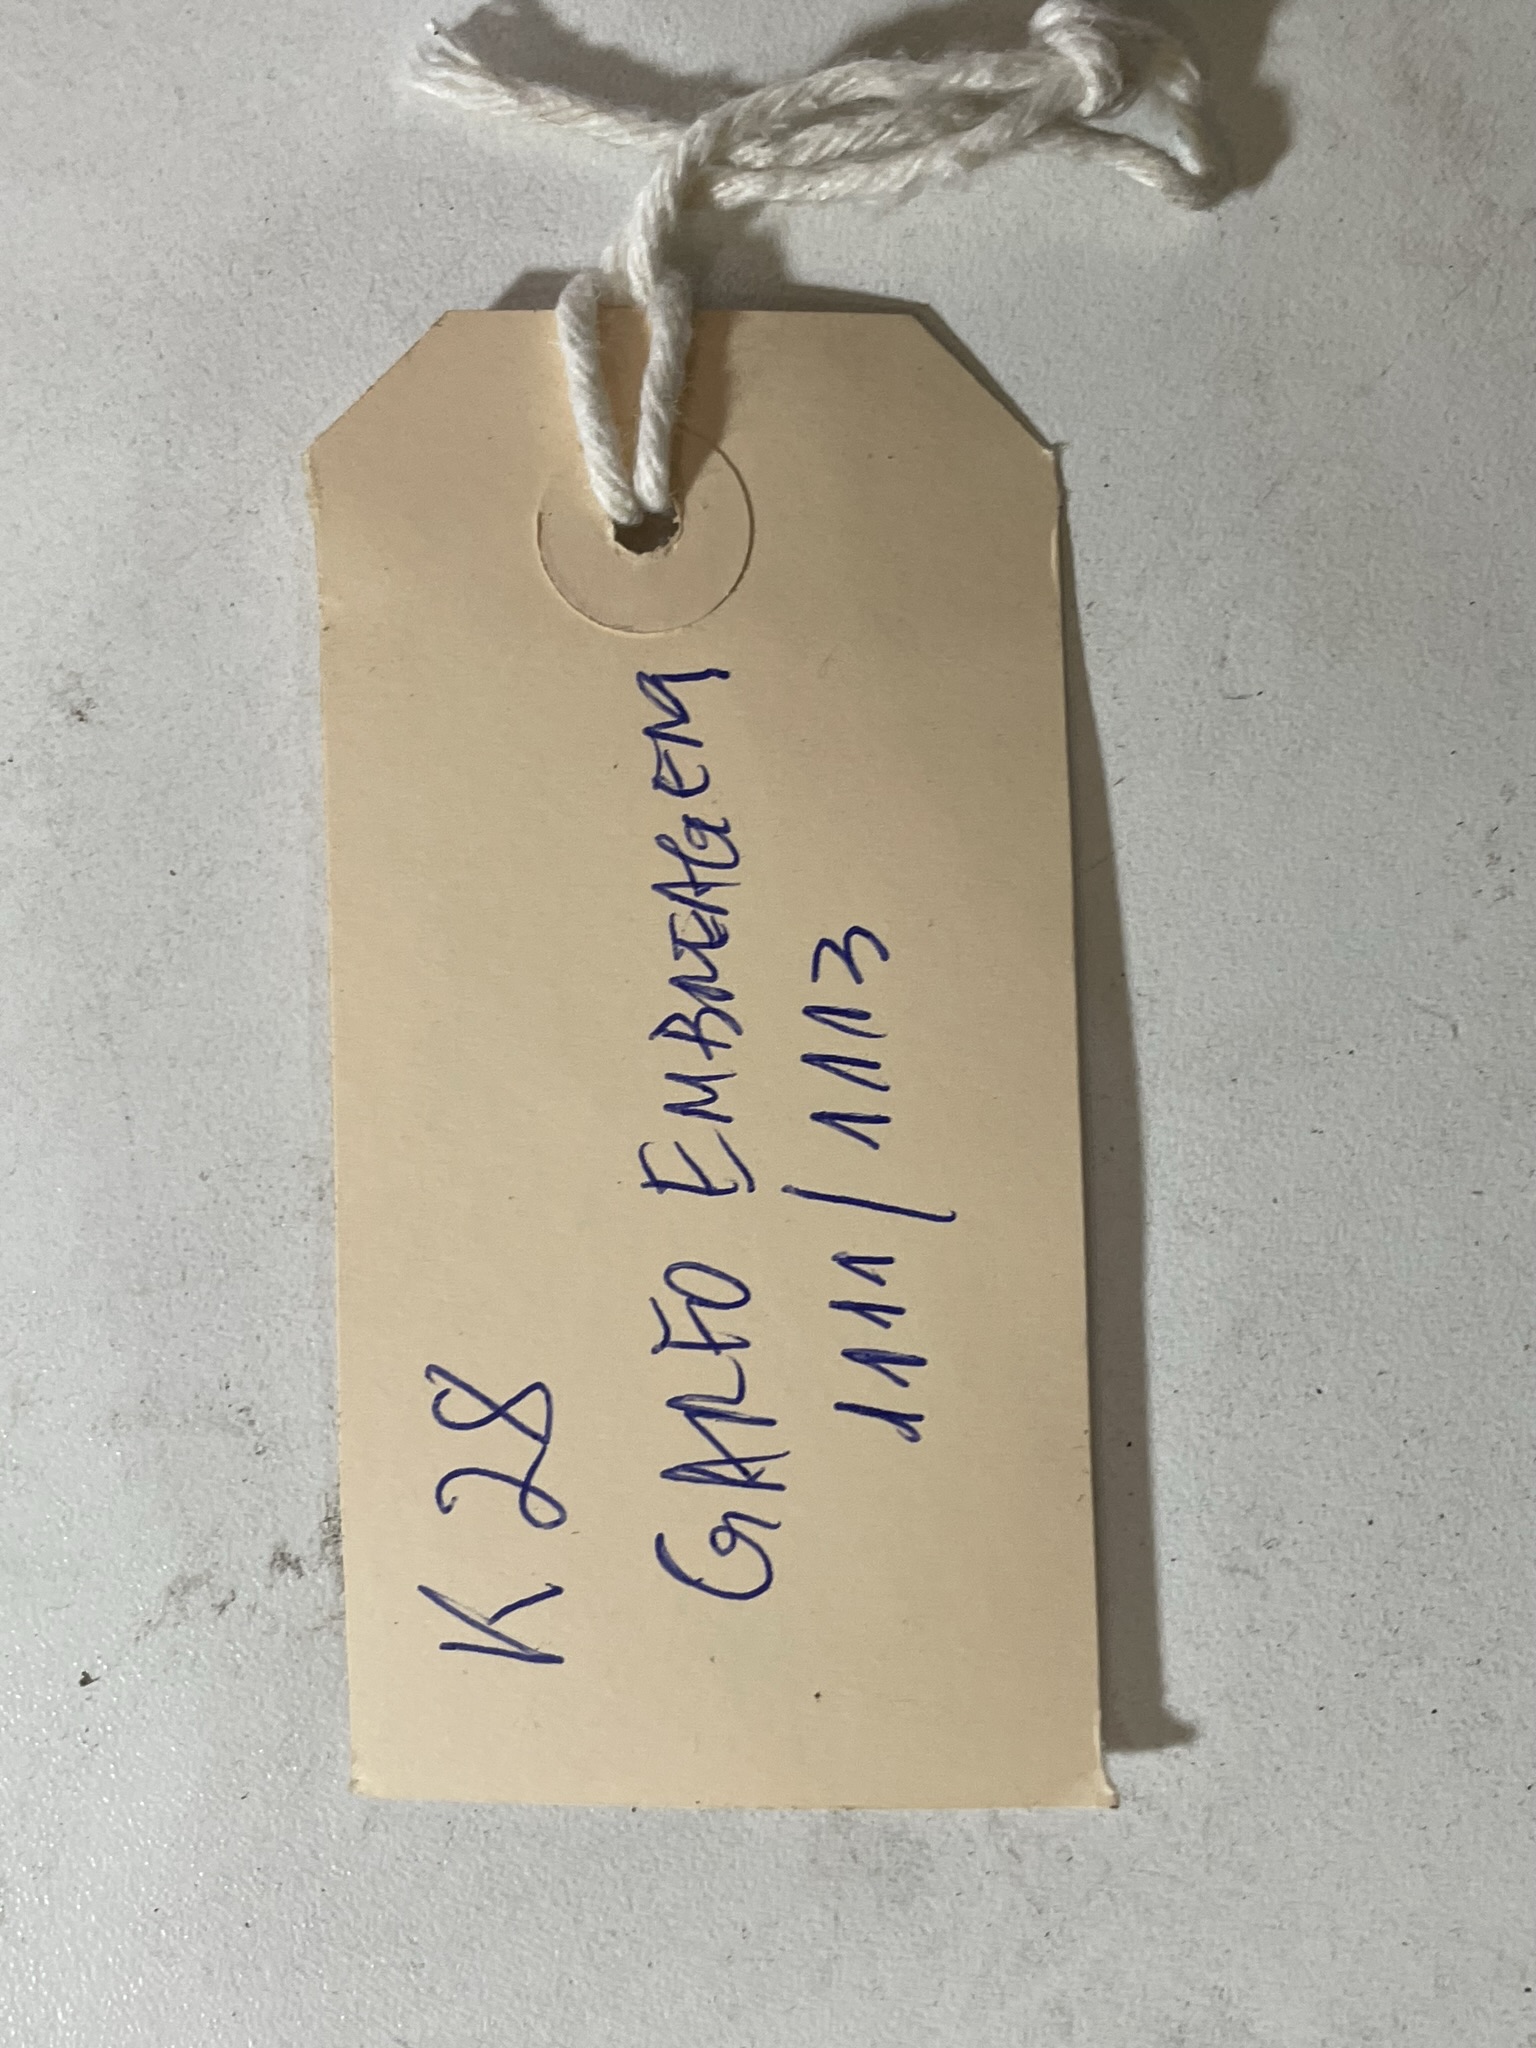 K 28
GARFO EMBREAGEM
1111/1113